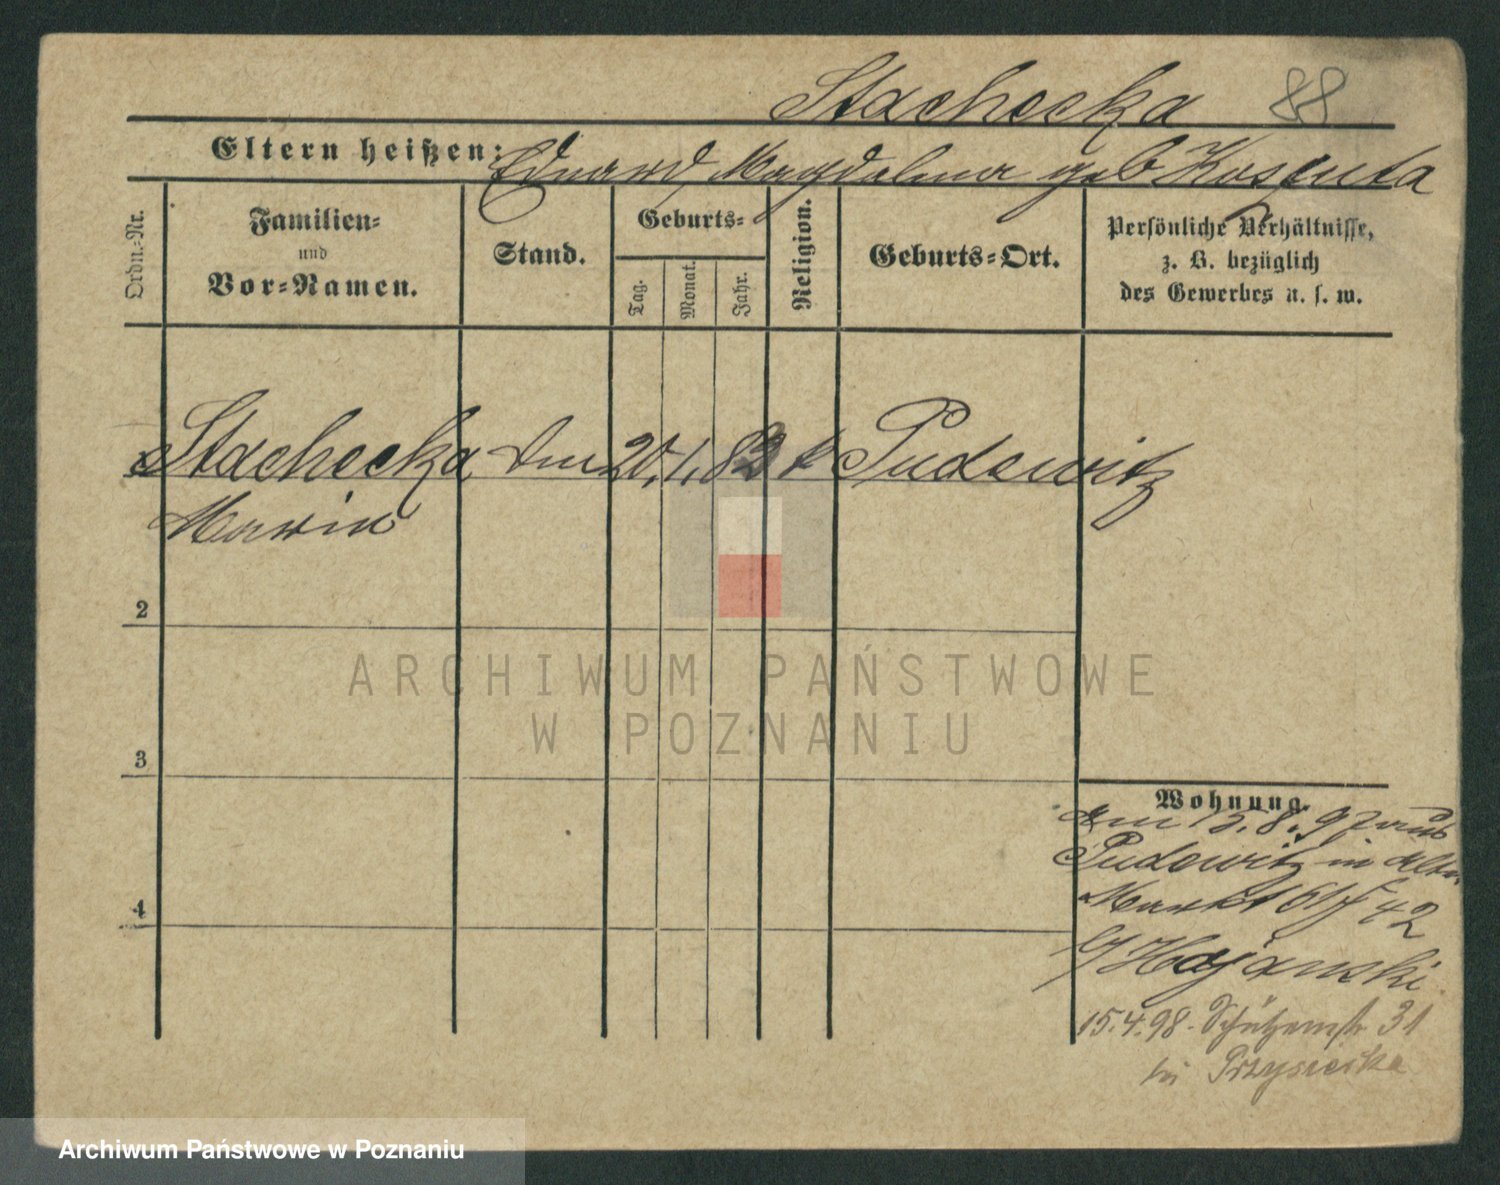 Stachecka 88
Eltern heißen: Eduard, Magdalena geb Koszuta
Ordn.-Nr.
Familien-
und
Vor-Namen.
Stand.
Geburts-
Tag.
Monat.
Jahr.
Religion.
Geburts-Ort.
Persönliche Verhältnisse,
z. B. bezüglich
des Gewerbes u. s. w.
Stachecka 20. 1. 83 k Pudewitz
Maria
2
3
4
Wohnung.
am 15.8.97 aus
Pudewitz in Alter
Markt 42
Hajanski
15.4.98. Schützenstr 31
bei Przysiecka
ARCHIWUM PAŃSTWOWE
W POZNANIU
Archiwum Państwowe w Poznaniu